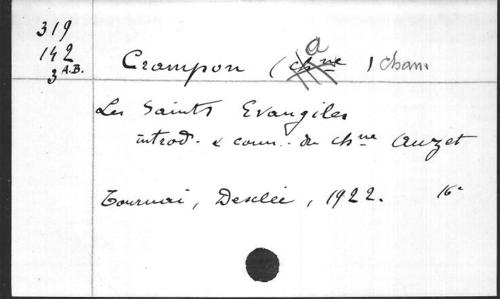 319
142
3 A.B.
Crampon (a) Chan.
Les Saints Evangiles
introd. & comm. du chne Auzet
Tournai, Desclée, 1922. 16°